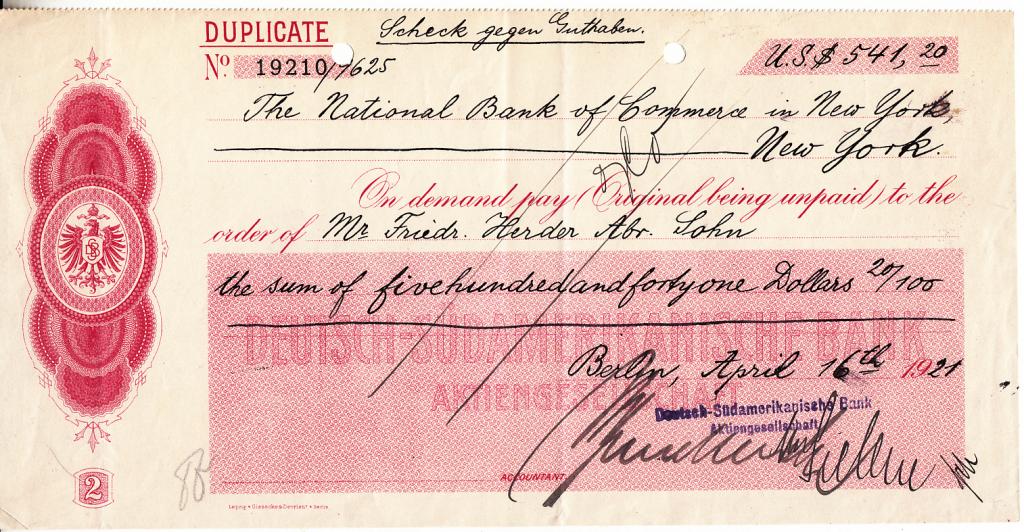 DUPLICATE
Scheck gegen Guthaben.
No. 19210/7625
U.S.$ 541,20
The National Bank of Commerce in New York,
New York.
On demand pay (Original being unpaid) to the
order of Mr Friedr. Herder Abr. Sohn
the sum of fivehundredandfortyone Dollars 20/100
DEUTSCH-SÜDAMERIKANISCHE BANK
AKTIENGESELLSCHAFT
Berlin, April 16th 1921
Deutsch-Südamerikanische Bank
Aktiengesellschaft
ACCOUNTANT
2
Leipzig • Giesecke & Devrient • Berlin